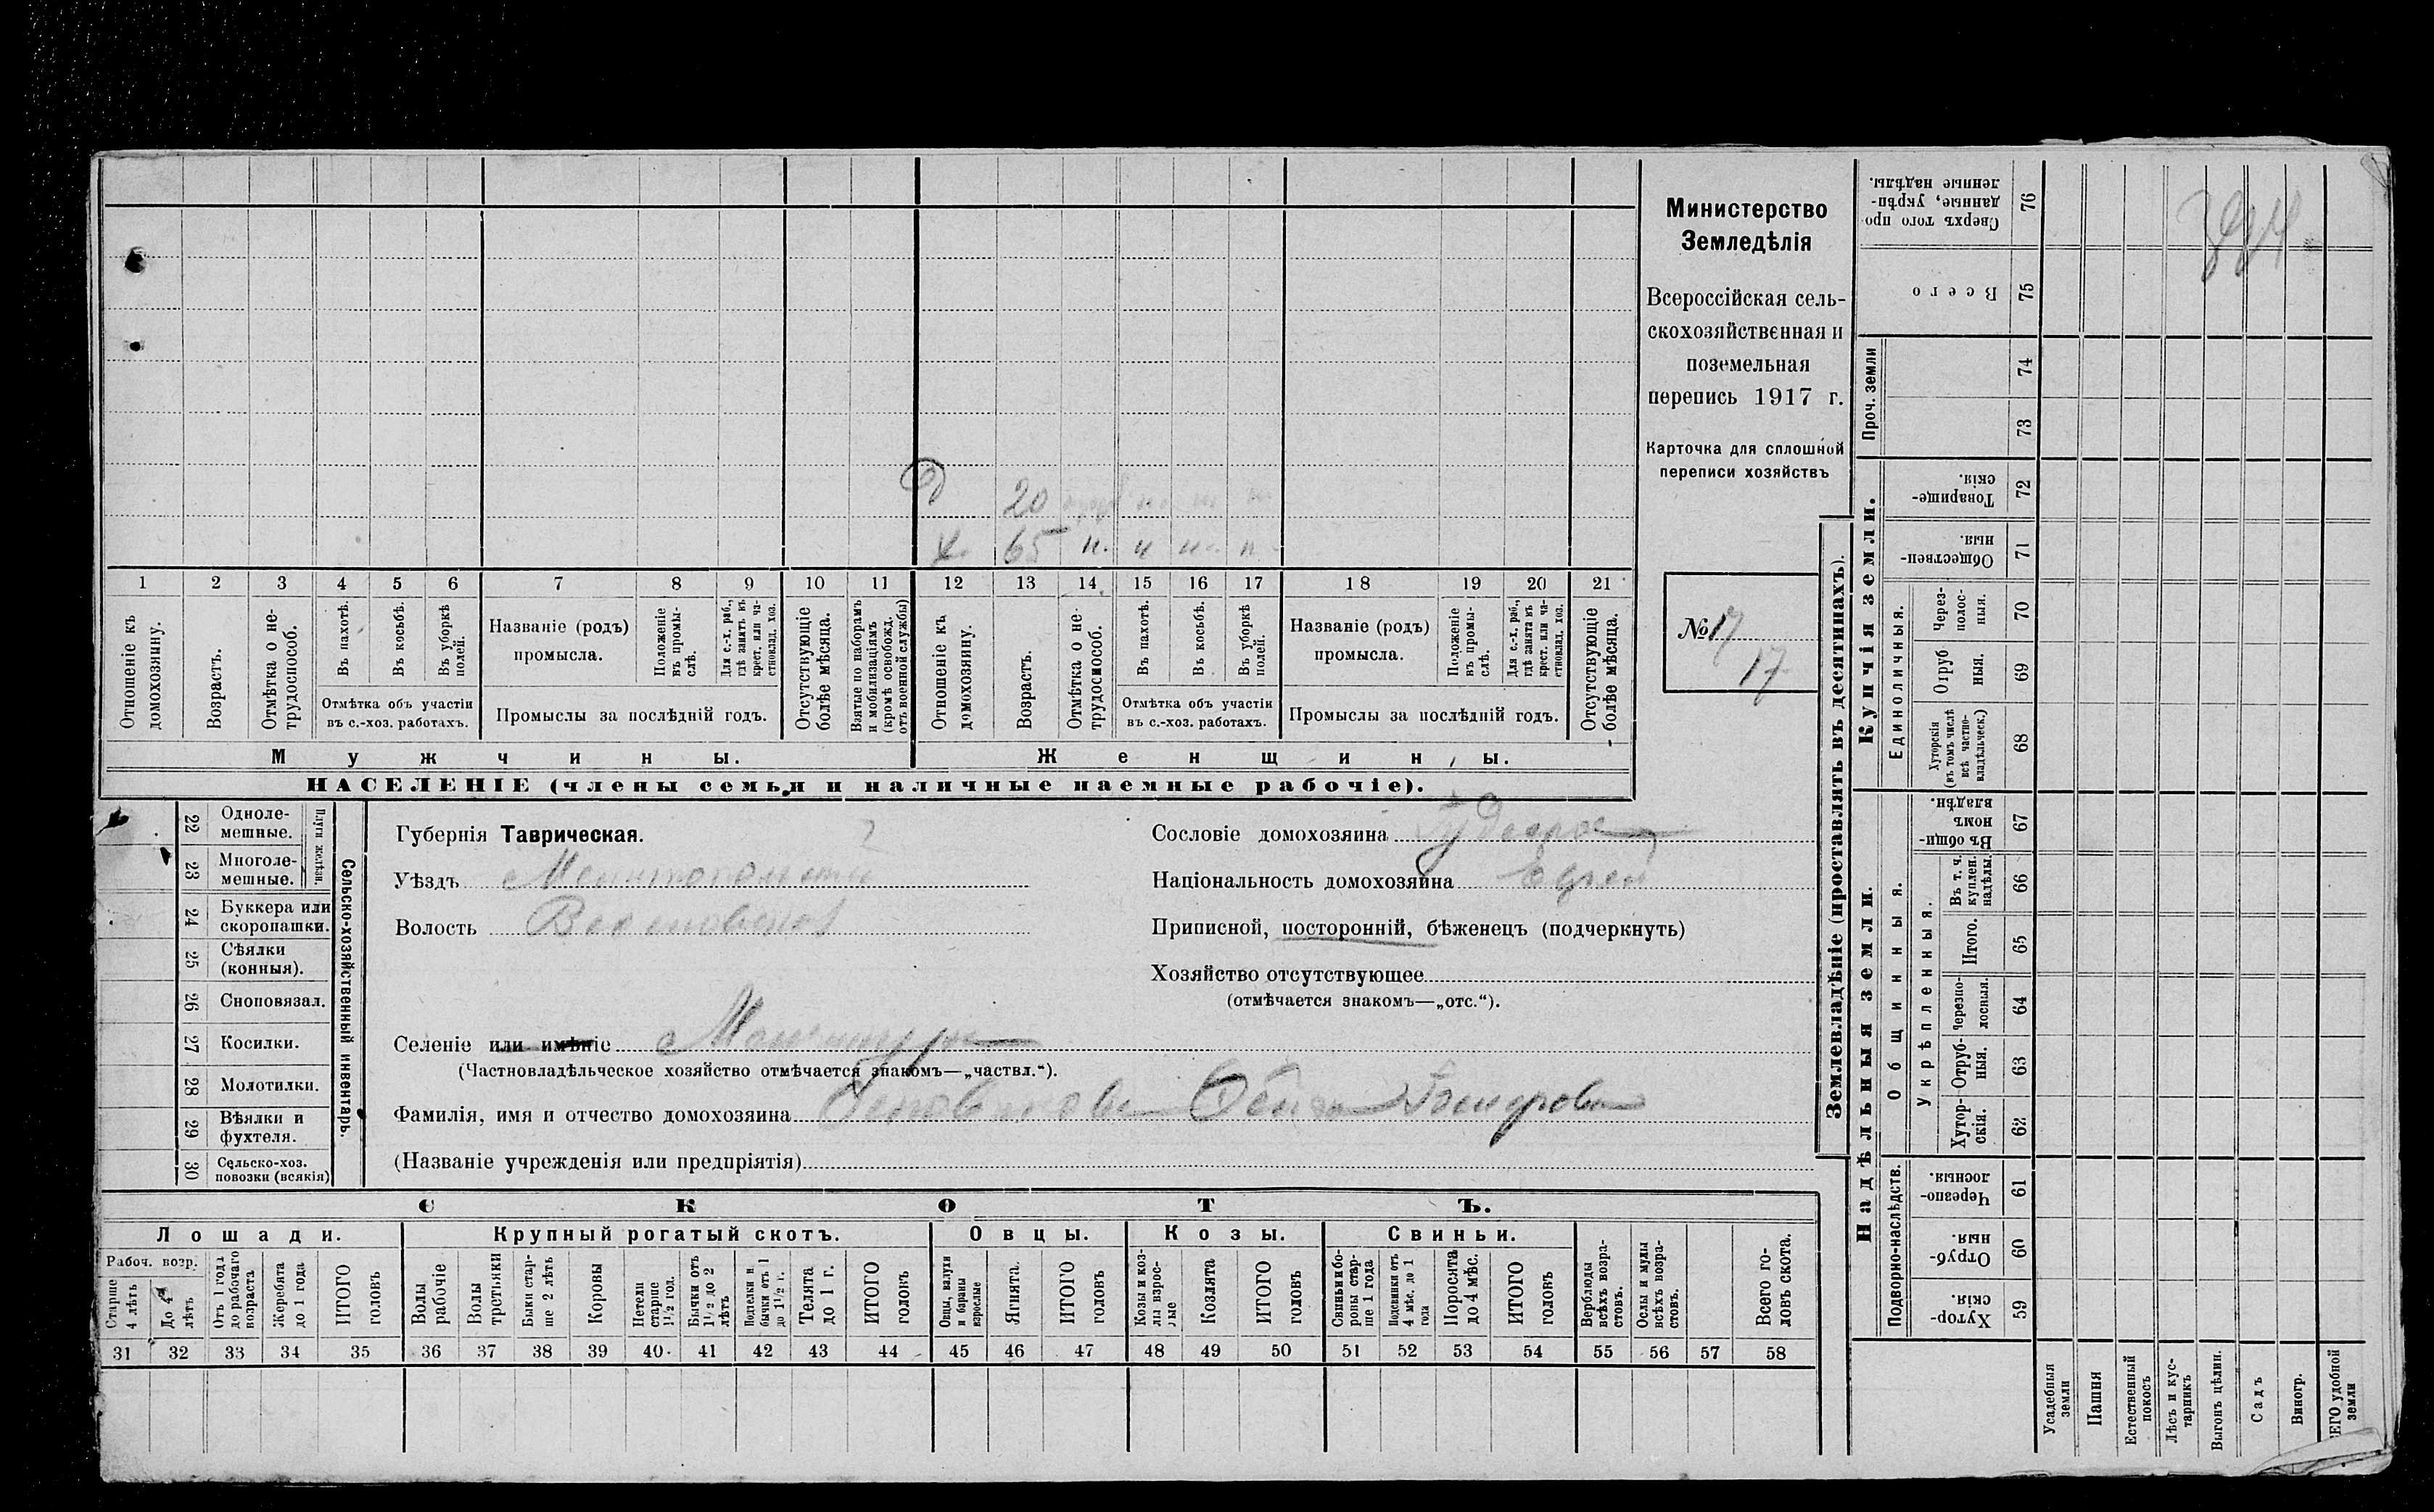 Министерство
Земледѣлія
Всероссійская сель-
скохозяйственная и
поземельная
перепись 1917 г.
Карточка для сплошной
переписи хозяйствъ
№ 17
17
20
ж. 65 н. н н. н
1 2 3 4 5 6 7 8 9 10 11 12 13 14 15 16 17 18 19 20 21
Отношеніе къ домохозяину.
Возрастъ.
Отмѣтка о не-трудоспособ.
Въ пахотѣ.
Въ косьбѣ.
Въ уборкѣ полей.
Отмѣтка объ участіи въ с.-хоз. работахъ.
Названіе (родъ) промысла.
Положеніе въ промы-слѣ.
Для с.-х. раб., гдѣ занятъ въ крест. или ча-стновлад. хоз.
Промыслы за послѣдній годъ.
Отсутствующіе болѣе мѣсяца.
Взятые по наборамъ и мобилизаціямъ (кромѣ освобожд. отъ военной службы)
Отношеніе къ домохозяину.
Возрастъ.
Отмѣтка о не-трудоспособ.
Въ пахотѣ.
Въ косьбѣ.
Въ уборкѣ полей.
Отмѣтка объ участіи въ с.-хоз. работахъ.
Названіе (родъ) промысла.
Положеніе въ промы-слѣ.
Для с.-х. раб., гдѣ занята въ крест. или ча-стновлад. хоз.
Промыслы за послѣдній годъ.
Отсутствующіе болѣе мѣсяца.
Мужчины. Женщины.
НАСЕЛЕНІЕ (члены семьи и наличные наемные рабочіе).
22 Одноле-мешные.
23 Многоле-мешные.
Плуги желѣзн.
24 Буккера или скоропашки.
25 Сѣялки (конныя).
26 Сноповязал.
27 Косилки.
28 Молотилки.
29 Вѣялки и фухтеля.
30 Сельско-хоз. повозки (всякія)
Сельско-хозяйственный инвентарь.
Губернія Таврическая.
Уѣздъ Мелитопольскій
Волость
Селеніе или имѣніе
(Частновладѣльческое хозяйство отмѣчается знакомъ—„частвл.“).
Фамилія, имя и отчество домохозяина
(Названіе учрежденія или предпріятія)
Сословіе домохозяина
Національность домохозяина Еврей
Приписной, посторонній, бѣженецъ (подчеркнуть)
Хозяйство отсутствующее
(отмѣчается знакомъ—„отс.“).
СКОТЪ.
Лошади. Крупный рогатый скотъ. Овцы. Козы. Свиньи.
Рабоч. возр.
Старше 4 лѣтъ
До 4 лѣтъ
Отъ 1 года до рабочаго возраста
Жеребята до 1 года
ИТОГО головъ
Волы рабочіе
Волы третьяки
Быки стар-ше 2 лѣтъ
Коровы
Нетели старше 1½ год.
Бычки отъ 1½ до 2 лѣтъ
Подтелки и бычки отъ 1 до 1½ г.
Телята до 1 г.
ИТОГО головъ
Овцы, валухи и бараны взрослые
Ягнята.
ИТОГО головъ
Козы и коз-лы взрос-лые
Козлята
ИТОГО головъ
Свиньи и бо-ровы стар-ше 1 года
Подсвинки отъ 4 мѣс. до 1 года
Поросята до 4 мѣс.
ИТОГО головъ
Верблюды всѣхъ возра-стовъ.
Ослы и мулы всѣхъ возра-стовъ.
Всего го-ловъ скота.
31 32 33 34 35 36 37 38 39 40 41 42 43 44 45 46 47 48 49 50 51 52 53 54 55 56 57 58
Землевладѣніе (проставлять въ десятинахъ).
Надѣльныя земли. Купчія земли.
Проч. земли
Подворно-наслѣдств.
Общинныя.
Укрѣпленныя.
Единоличныя.
Сверхъ того про-данные, укрѣп-ленные надѣлы. 76
Всего 75
74
73
Товарище-скія. 72
Обществен-ныя. 71
Через-полос-ныя. 70
Отруб ныя. 69
Хуторскія (въ томъ числѣ всѣ частно-владѣльческ.) 68
Въ общи номъ владѣн. 67
Въ т. ч. куплен. надѣлы. 66
Итого. 65
Черезпо-лосныя. 64
Отруб-ныя. 63
Хутор-скія. 62
Черезпо-лосныя. 61
Отруб-ныя. 60
Хутор-скія. 59
Усадебныя земли
Пашня
Естественный покосъ
Лѣсъ и кус-тарникъ
Выгонъ цѣлин.
Садъ
Виногр.
ЕГО удобной земли